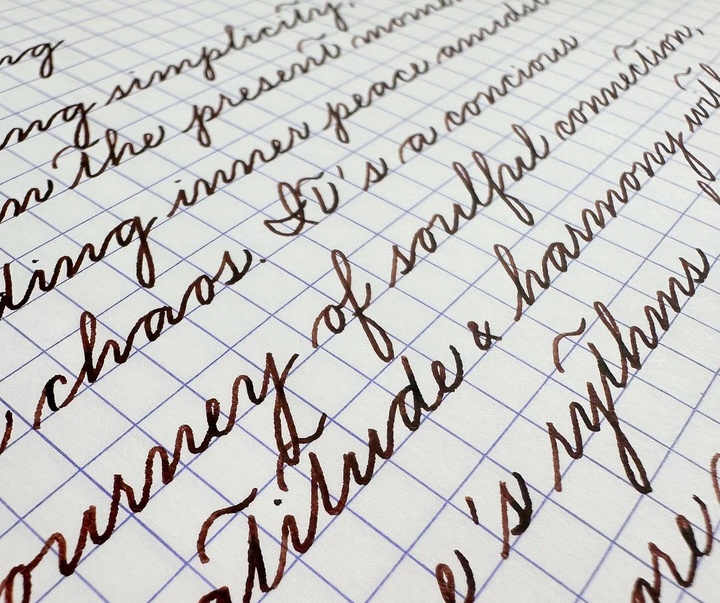 ng
ng simplicity.
n the present mome
ding inner peace amidst
chaos. It's a concious
ourney of soulful connection,
atitude & harmony with
e's rythms
are